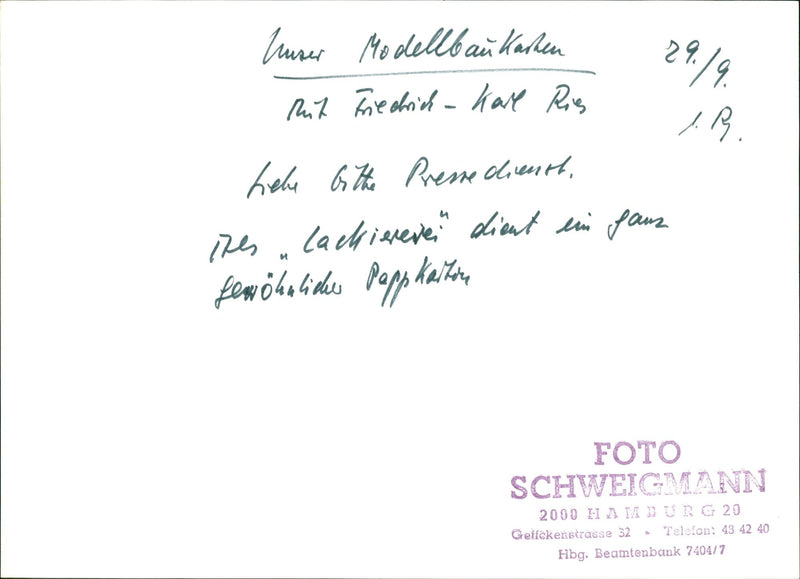 Unser Modellbaukasten
29./9.
mit Friedrich - Karl Ries
Siehe bitte Pressedienst.
Als "Lackiererei" dient ein ganz
gewöhnlicher Pappkarton
FOTO
SCHWEIGMANN
2000 HAMBURG 20
Geffckenstrasse 32 - Telefon: 48 42 40
Hbg. Beamtenbank 7404/7